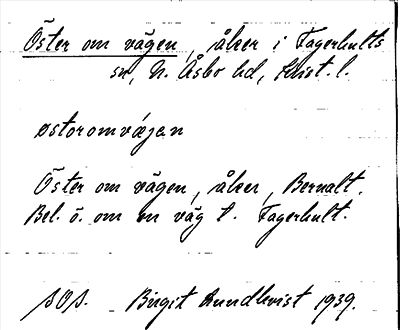 Öster om vägen, åker i Fagerhults
sn, N. Åsbo hd, Krist. l.
østoromvǽgen
Öster om vägen, åker, Bernalt.
Bel. ö. om en väg t. Fagerhult.
SOS. Birgit Rundkvist 1939.